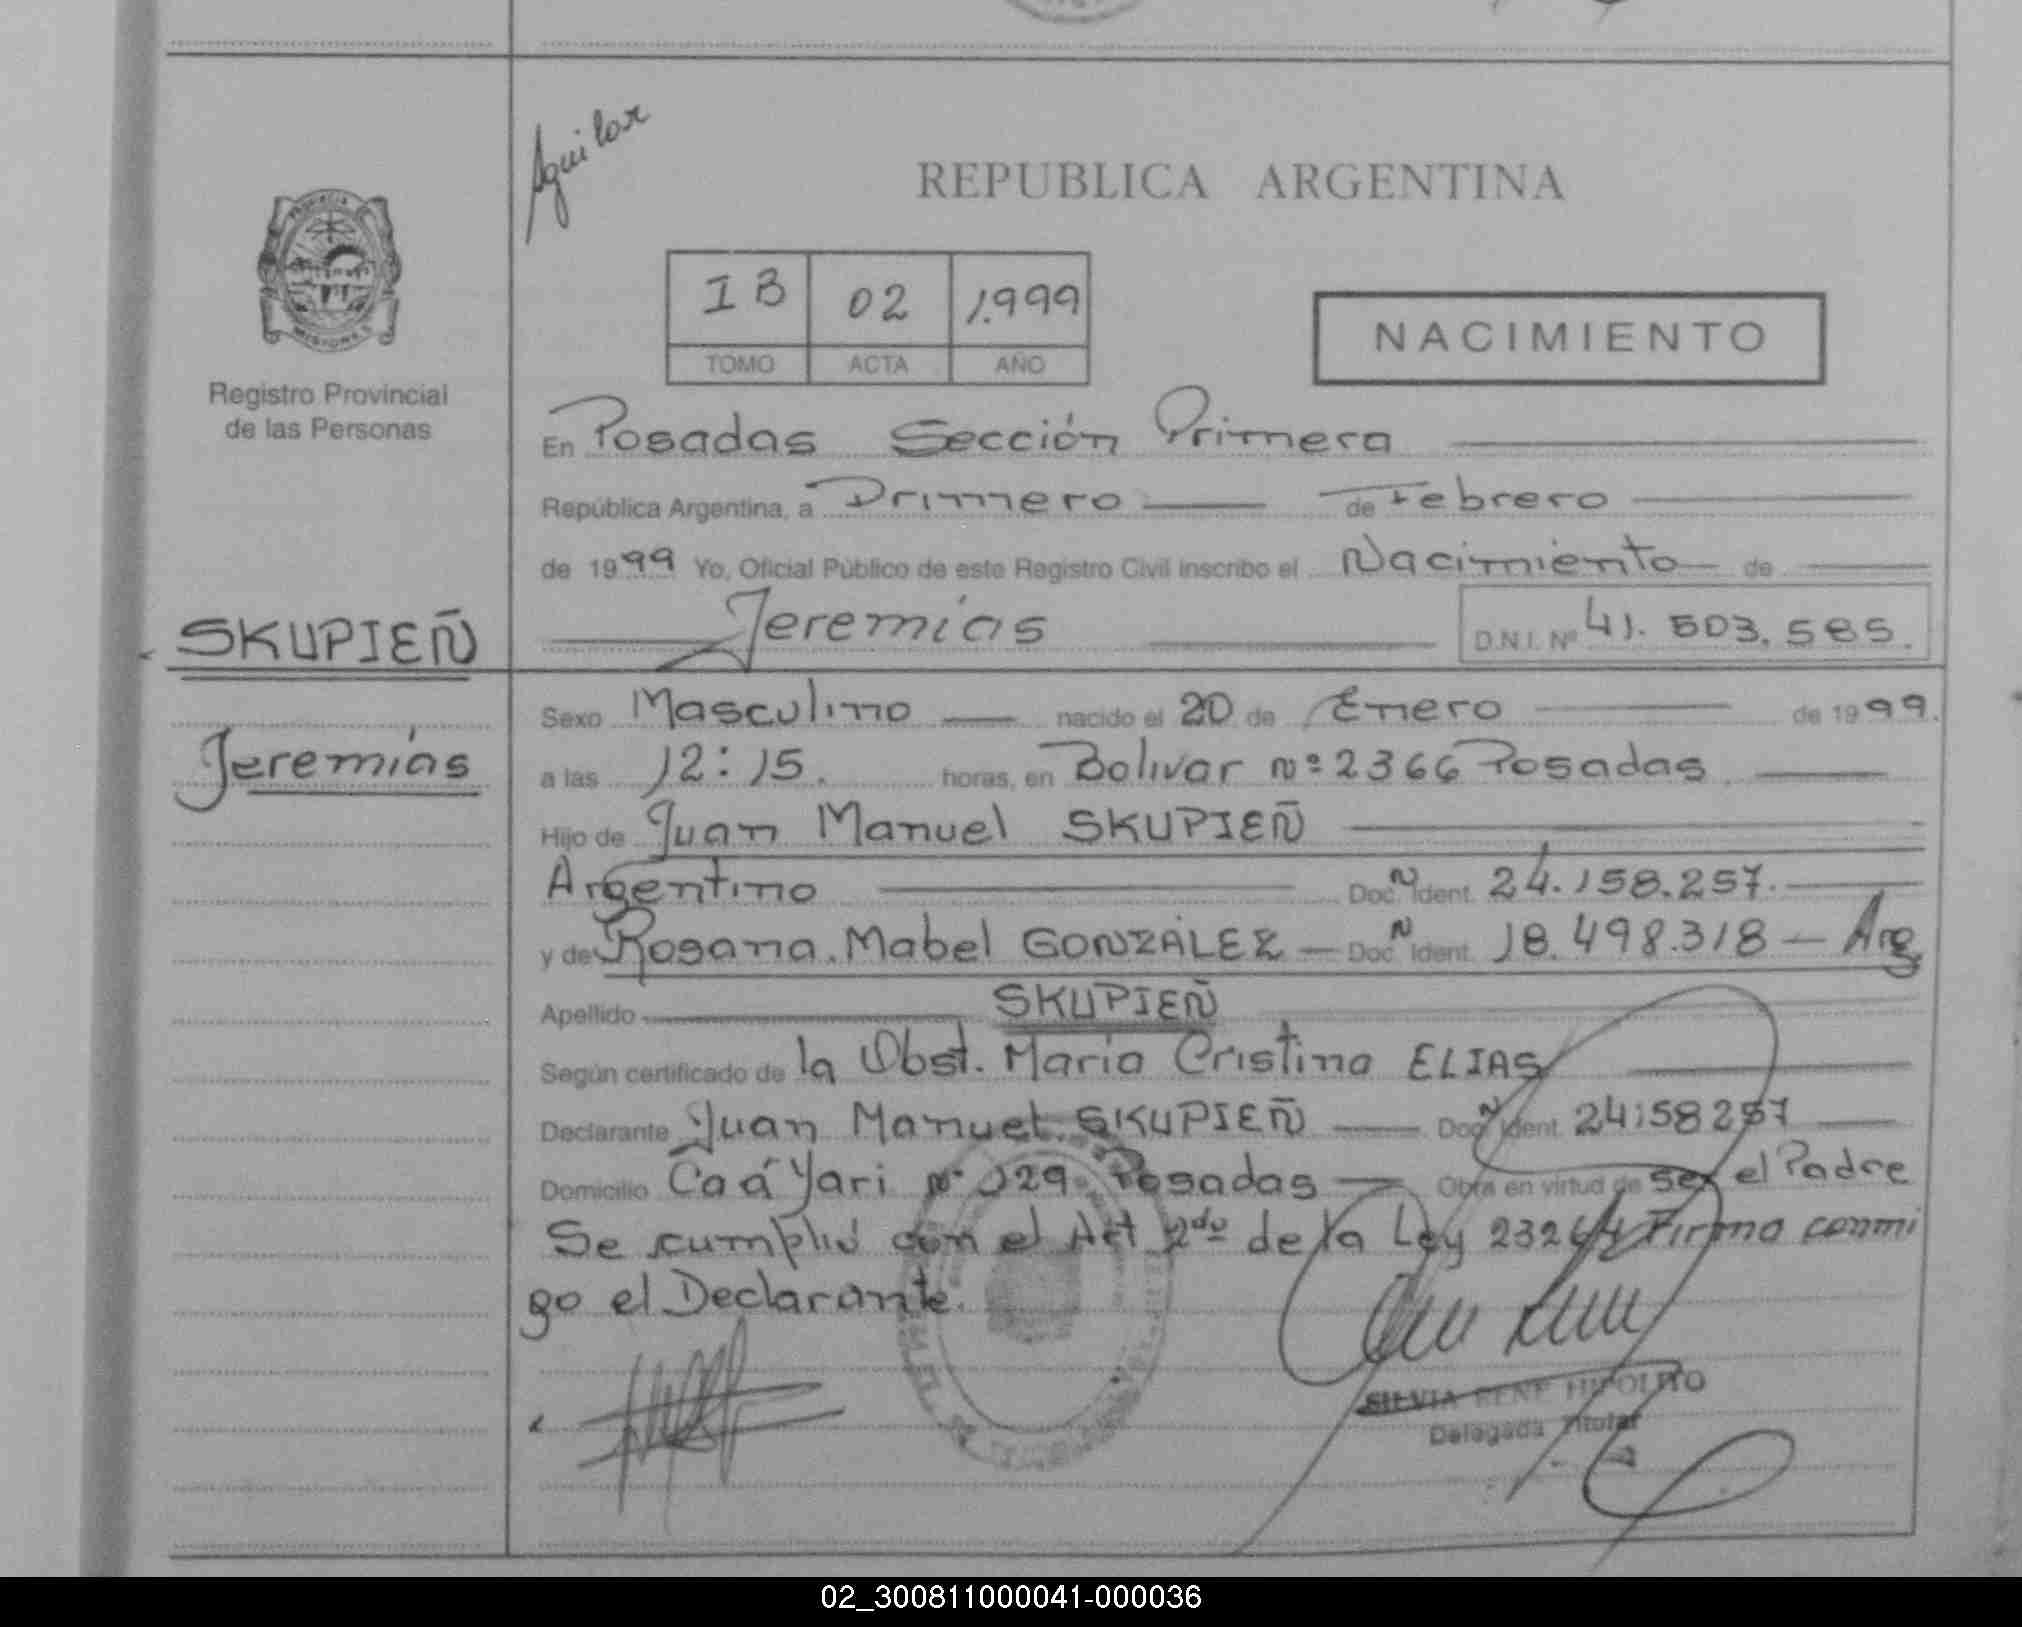 Aguilar
REPUBLICA ARGENTINA
IB 02 1.999
TOMO ACTA AÑO
NACIMIENTO
Registro Provincial
de las Personas
En Posadas Sección Primera
República Argentina, a Primero de Febrero
de 1999 Yo, Oficial Público de este Registro Civil inscribo el Nacimiento de
SKUPIEÑ
Jeremías D.N.I. Nº 41.503.585.
Jeremías
Sexo Masculino nacido el 20 de Enero de 1999.
a las 12:15. horas, en Bolivar nº 2366 Posadas
Hijo de Juan Manuel SKUPIEÑ
Argentino Doc. N Ident. 24.158.257.
y de Rosana Mabel GONZÁLEZ Doc. N Ident. 18.498.318 - Arg
Apellido SKUPIEÑ
Según certificado de la Obst. Maria Cristina ELIAS
Declarante Juan Manuel SKUPIEÑ Doc. N Ident. 24158257
Domicilio Caá Yari nº 129 Posadas Obra en virtud de ser el Padre
Se cumplió con el Art 2do de la Ley 23264 Firma conmi
go el Declarante.
SILVIA RENE HIPOLITO
Delegada Titular
02_300811000041-000036